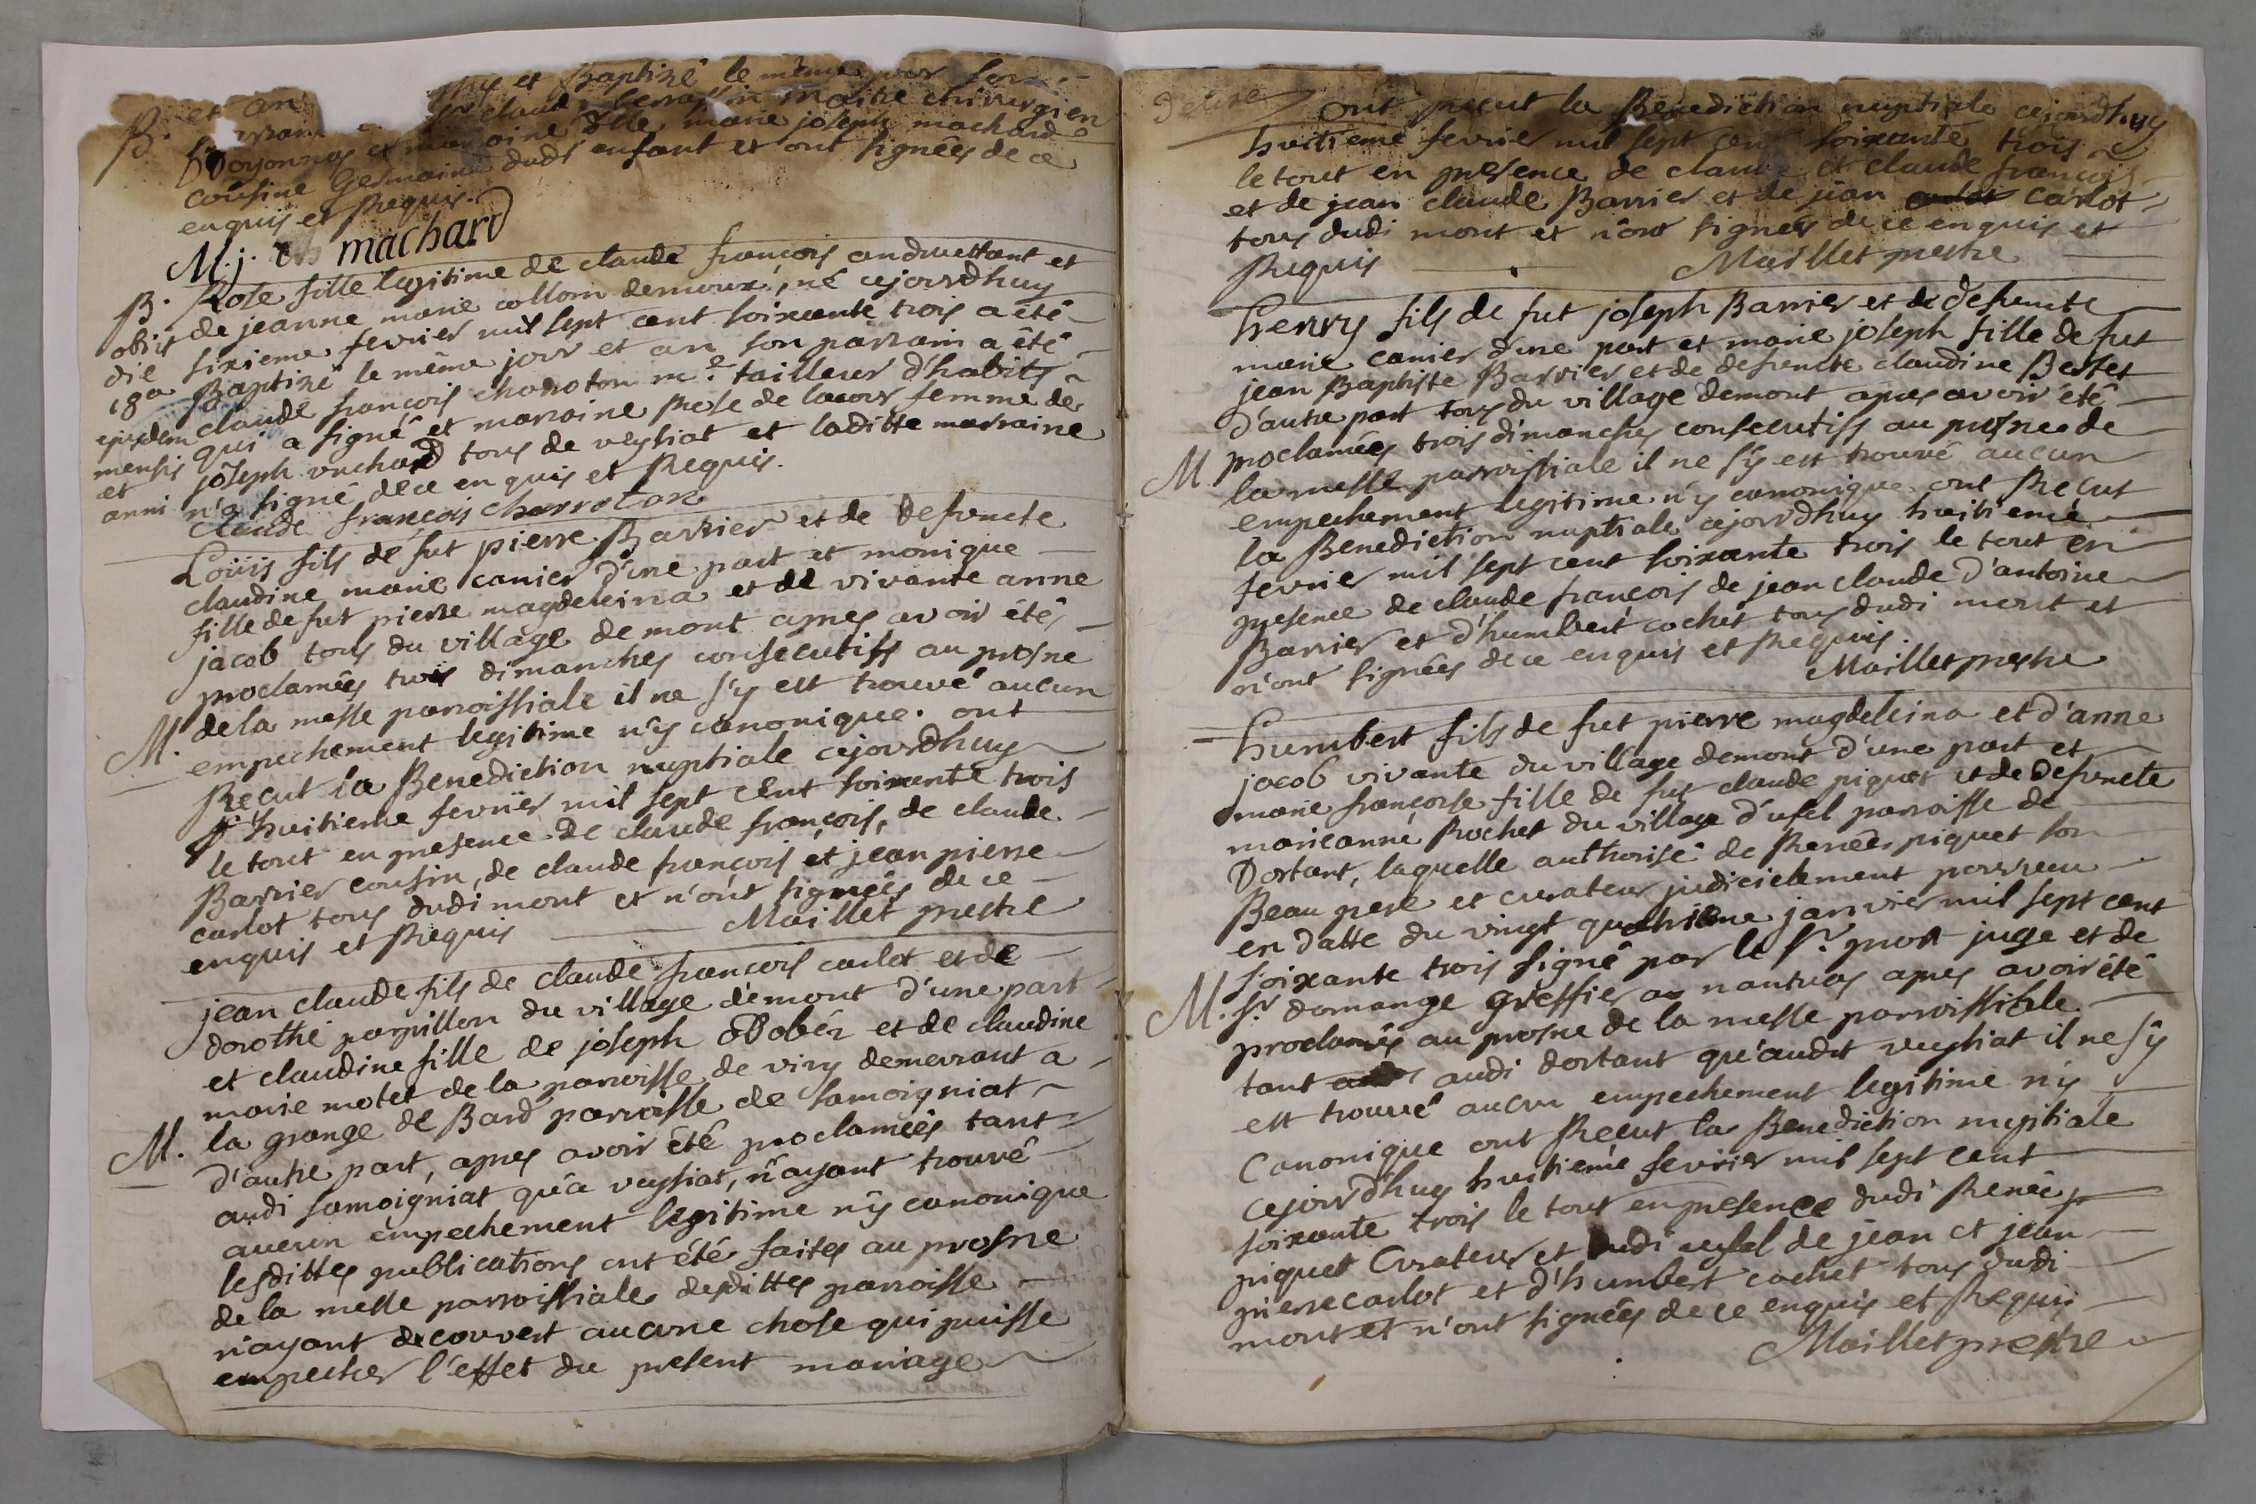 et Baptizé le même jour son
B. et an claude maitre chirurgien
D'oyonnas et marraine dlle marie joseph machard
cousine Germaine dudt enfant et ont signées de ce
enquis et Requis.
M. j. machard
B. Rose fille legitime de claude françois andruettant et
obiit de jeanne marie collom demoux, né cejourdhuy
die sixieme fevrier mil sept cent soixante trois a été
18a Baptizé le même jour et an son parrain a été
ejusdem claude françois charoton me. tailleur d'habits
mensis qui a signé et marraine Rose de lacour femme de
et joseph vuchard tous de veyziat et laditte marraine
anni n'a signé de ce enquis et Requis.
Claude françois charroton
Loüis fils de fut pierre Barrier et de defuncte
claudine marie canier d'une part et monique
fille de fut pierre magdeleina et de vivante anne
jacob tous du village demont apres avoir étés
proclamés trois dimanches consecutifs au prosne
M. de la messe parroissiale il ne s'y est trouvé aucun
empechement legitime n'y canonique. ont
Reçut la Benediction nuptiale cejourdhuy
huitieme fevrier mil sept cent soixante trois
le tout en presence de claude françois, de claude
Barrier cousin, de claude françois et jean pierre
carlot tous dudi mont et n'ont signées de ce
enquis et Requis Maillet prestre
jean claude fils de claude françois carlot et de
dorothé papillon du village demont d'une part
et claudine fille de joseph oBobéz et de claudine
marie motet de la parroisse de viry demeurant a
M. la grange de Bard parroisse de samoigniat
d'autre part, apres avoir été proclamées tant
audi samoigniat qu'a veyziat, n'ayant trouvé
aucun empechement legitime n'y canonique
lesdittes publications ont été faites au prosne
de la messe parroissiale desdittes parroisse
n'ayant decouvert aucune chose qui puisse
empecher l'effet du present mariage
ont reçut la Benediction nuptiale cejourdhuy
huitieme fevrier mil sept cent soixante trois
le tout en presence de claude et claude françois
et de jean claude Barrier et de jean carlot
tous dudi mont et n'ont signées de ce enquis et
Requis Maillet prestre
henry fils de fut joseph Barrier et de defuncte
marie canier d'une part et marie joseph fille de fut
jean Baptiste Barrier et de defuncte claudine Bertet
d'autre part tous du village demont apres avoir été
M. proclamées trois dimanches consecutifs au prosne de
la messe parroissiale il ne s'y est trouvé aucun
empechement legitime n'y canonique ont Reçut
la Benediction nuptiale cejourdhuy huitieme
fevrier mil sept cent soixante trois le tout en
presence de claude françois de jean claude d'antoine
Barrier et d'humbert cochet tous dudi mont et
n'ont signées de ce enquis et Requis.
Maillet prestre
humbert fils de fut pierre magdeleina et d'anne
jacob vivante du village demont d'une part et
marie françoise fille de fut claude piquet et de defuncte
marieanne Rochet du village d'ufel parroisse de
Dortant, laquelle authorisé de Renée piquet son
Beau pere et curateur judicielement pourveu
en datte du vingt quatrieme janvier mil sept cent
soixante trois signé par le sr. prost juge et de
M. sr. domange greffier a nantuas apres avoir été
proclamés au prosne de la messe parroissiale
tant audi dortant qu'audit veyziat il ne s'y
est trouvé aucun empechement legitime n'y
Canonique ont Reçut la Benediction nuptiale
cejourd'huy huitieme fevrier mil sept cent
soixante trois le tout en presence dudi Renée
piquet Curateur et dudi ufel de jean et jean
pierre carlot et d'humbert cochet tous dudi
mont et n'ont signées de ce enquis et Requis
Maillet prestre